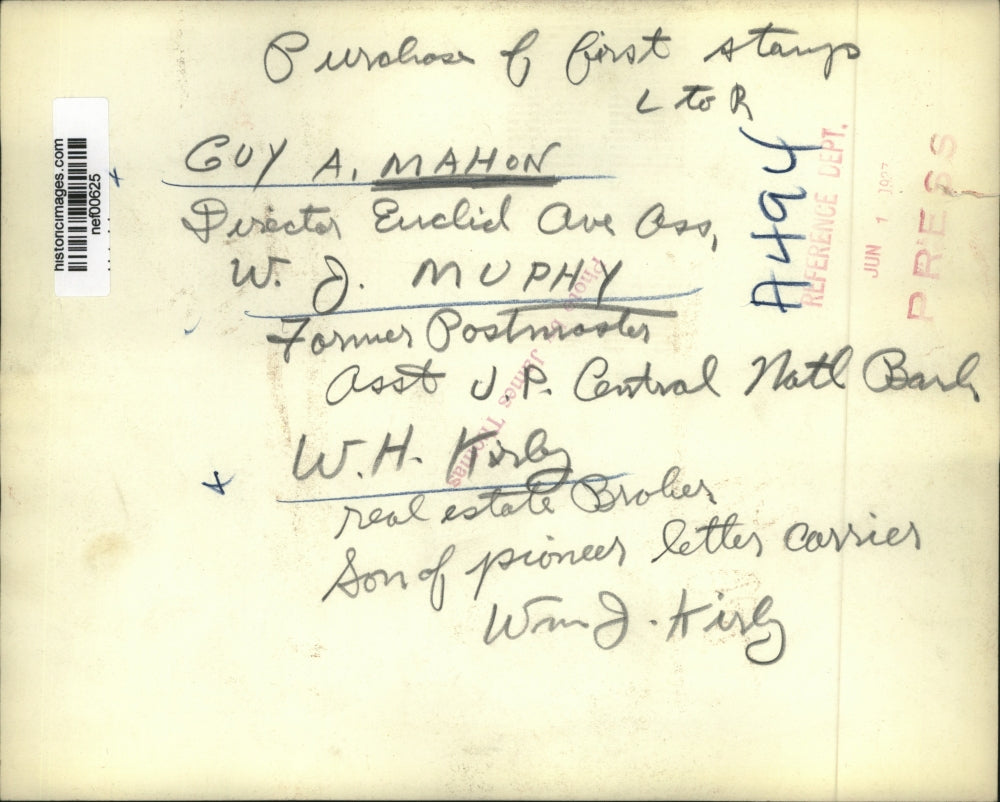 Purchase of first stamps
L to R
GUY A. MAHON
Director Euclid Ave Ass,
W. J. MUPHY
Former Postmaster
Asst V.P. Central Natl Bank
W.H. Kirby
real estate Broker
Son of pioneer letter carrier
Wm J. Kirby
A494
REFERENCE DEPT.
JUN 1 1937
PRESS
Photo by James Thomas
historicimages.com
nef00625